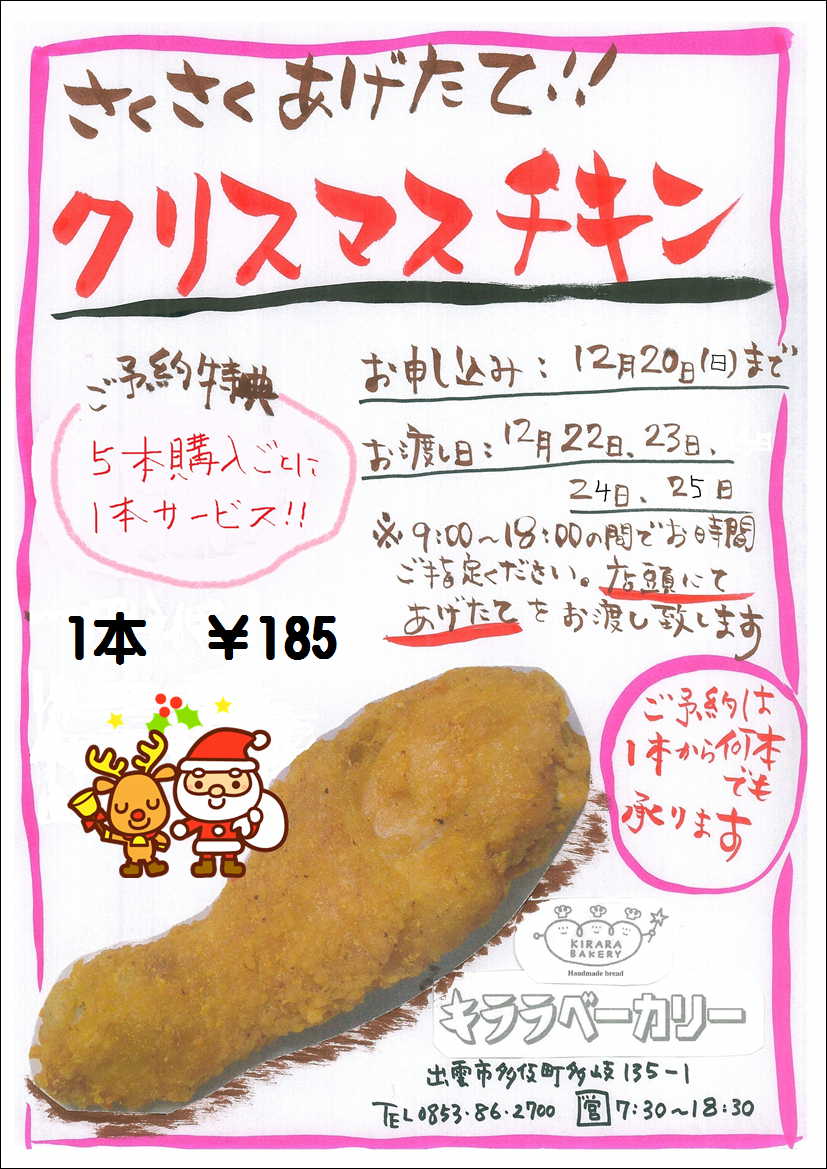 さくさくあげたて!!
クリスマスチキン
ご予約特典
5本購入ごとに
1本サービス!!
お申し込み：12月20日(日)まで
お渡し日：12月22日、23日、
24日、25日
※9:00～18:00の間でお時間
ご指定ください。店頭にて
あげたてをお渡し致します
1本 ￥185
ご予約は
1本から何本
でも
承ります
KIRARA
BAKERY
Handmade bread
キララベーカリー
出雲市多伎町多岐135-1
TEL 0853・86・2700 営 7:30～18:30